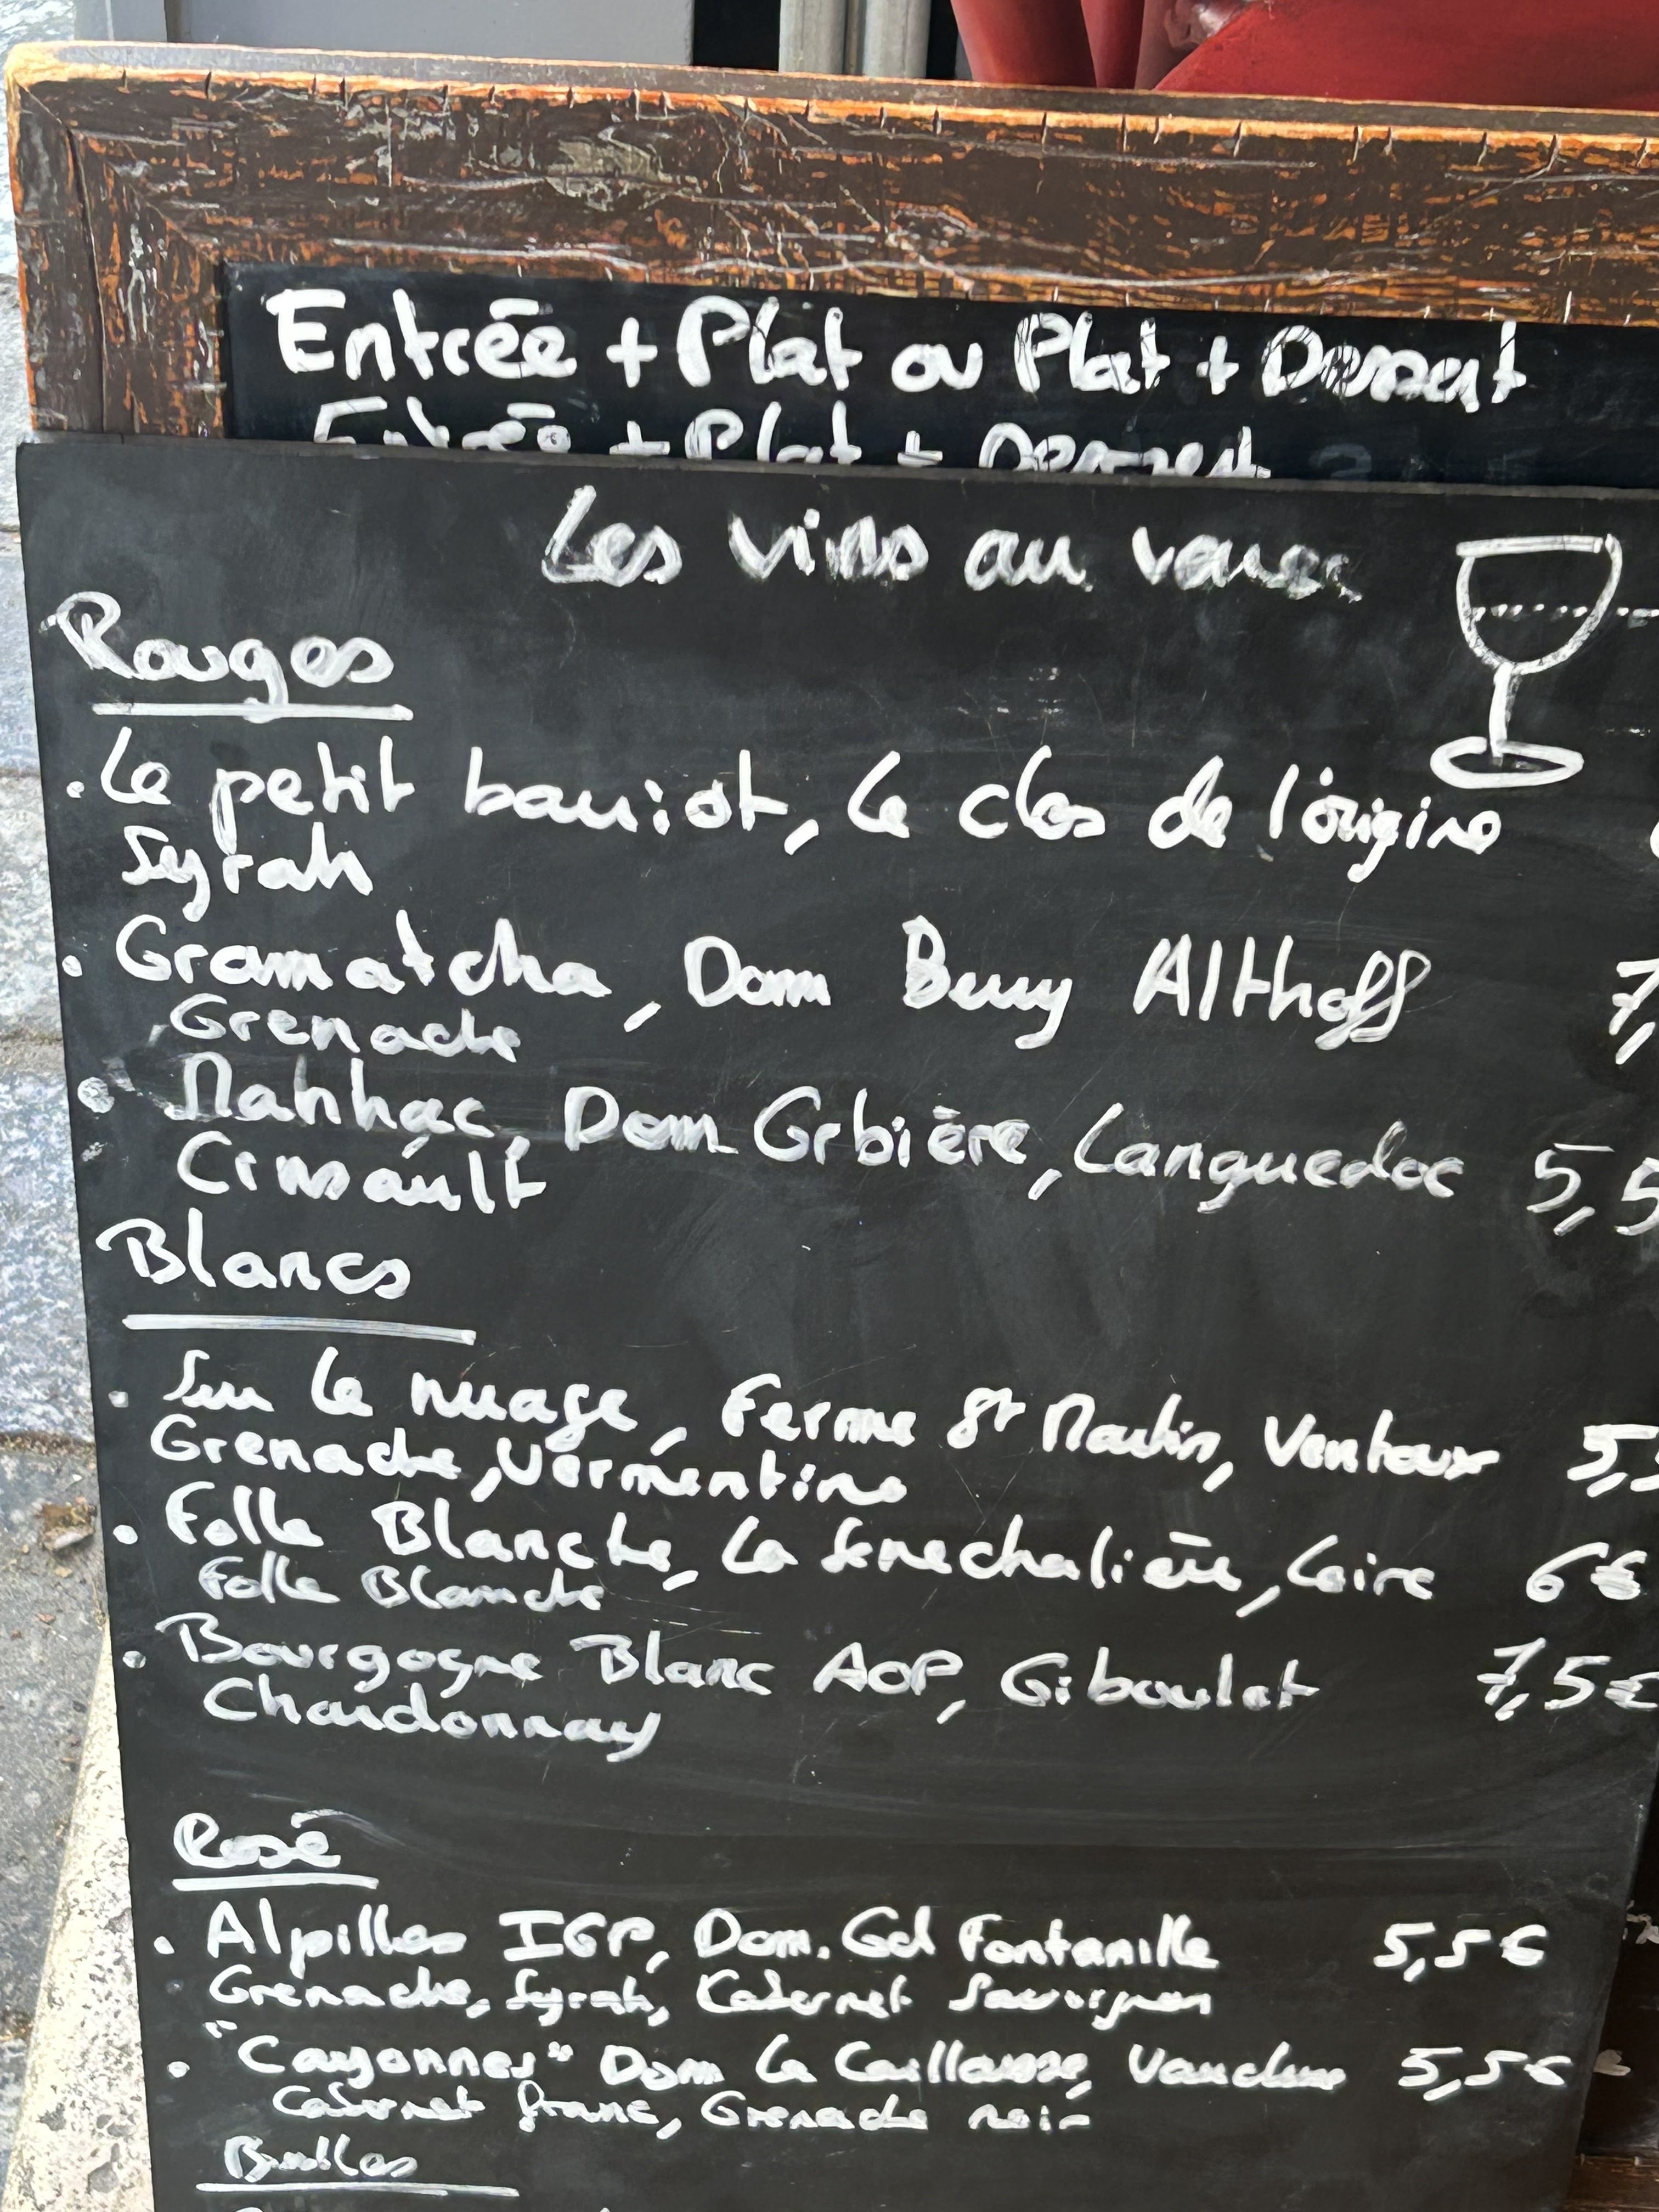 Entrée + Plat ou Plat + Dessert
Entrée + Plat + Dessert
Les vins au verre
Rouges
. Le petit barriot, Le clos de l'origine
Syrah
. Gramatcha, Dom Berry Althoff 7,
Grenache
. Nahhac, Dom Grbière, Languedoc 5,5
Cinsault
Blancs
. Sur le nuage, Ferme St Martin, Ventoux 5,5
Grenache, Vermentino
. Folle Blanche, La Senechalière, Loire 6€
Folle Blanche
. Bourgogne Blanc AOP, Giboulot 7,5€
Chardonnay
Rosé
. Alpilles IGP, Dom. Gd Fontanille 5,5€
Grenache, Syrah, Cabernet Sauvignon
. "Cayonnes" Dom La Caillausse, Vaucluse 5,5€
Cabernet franc, Grenache noir
Bulles